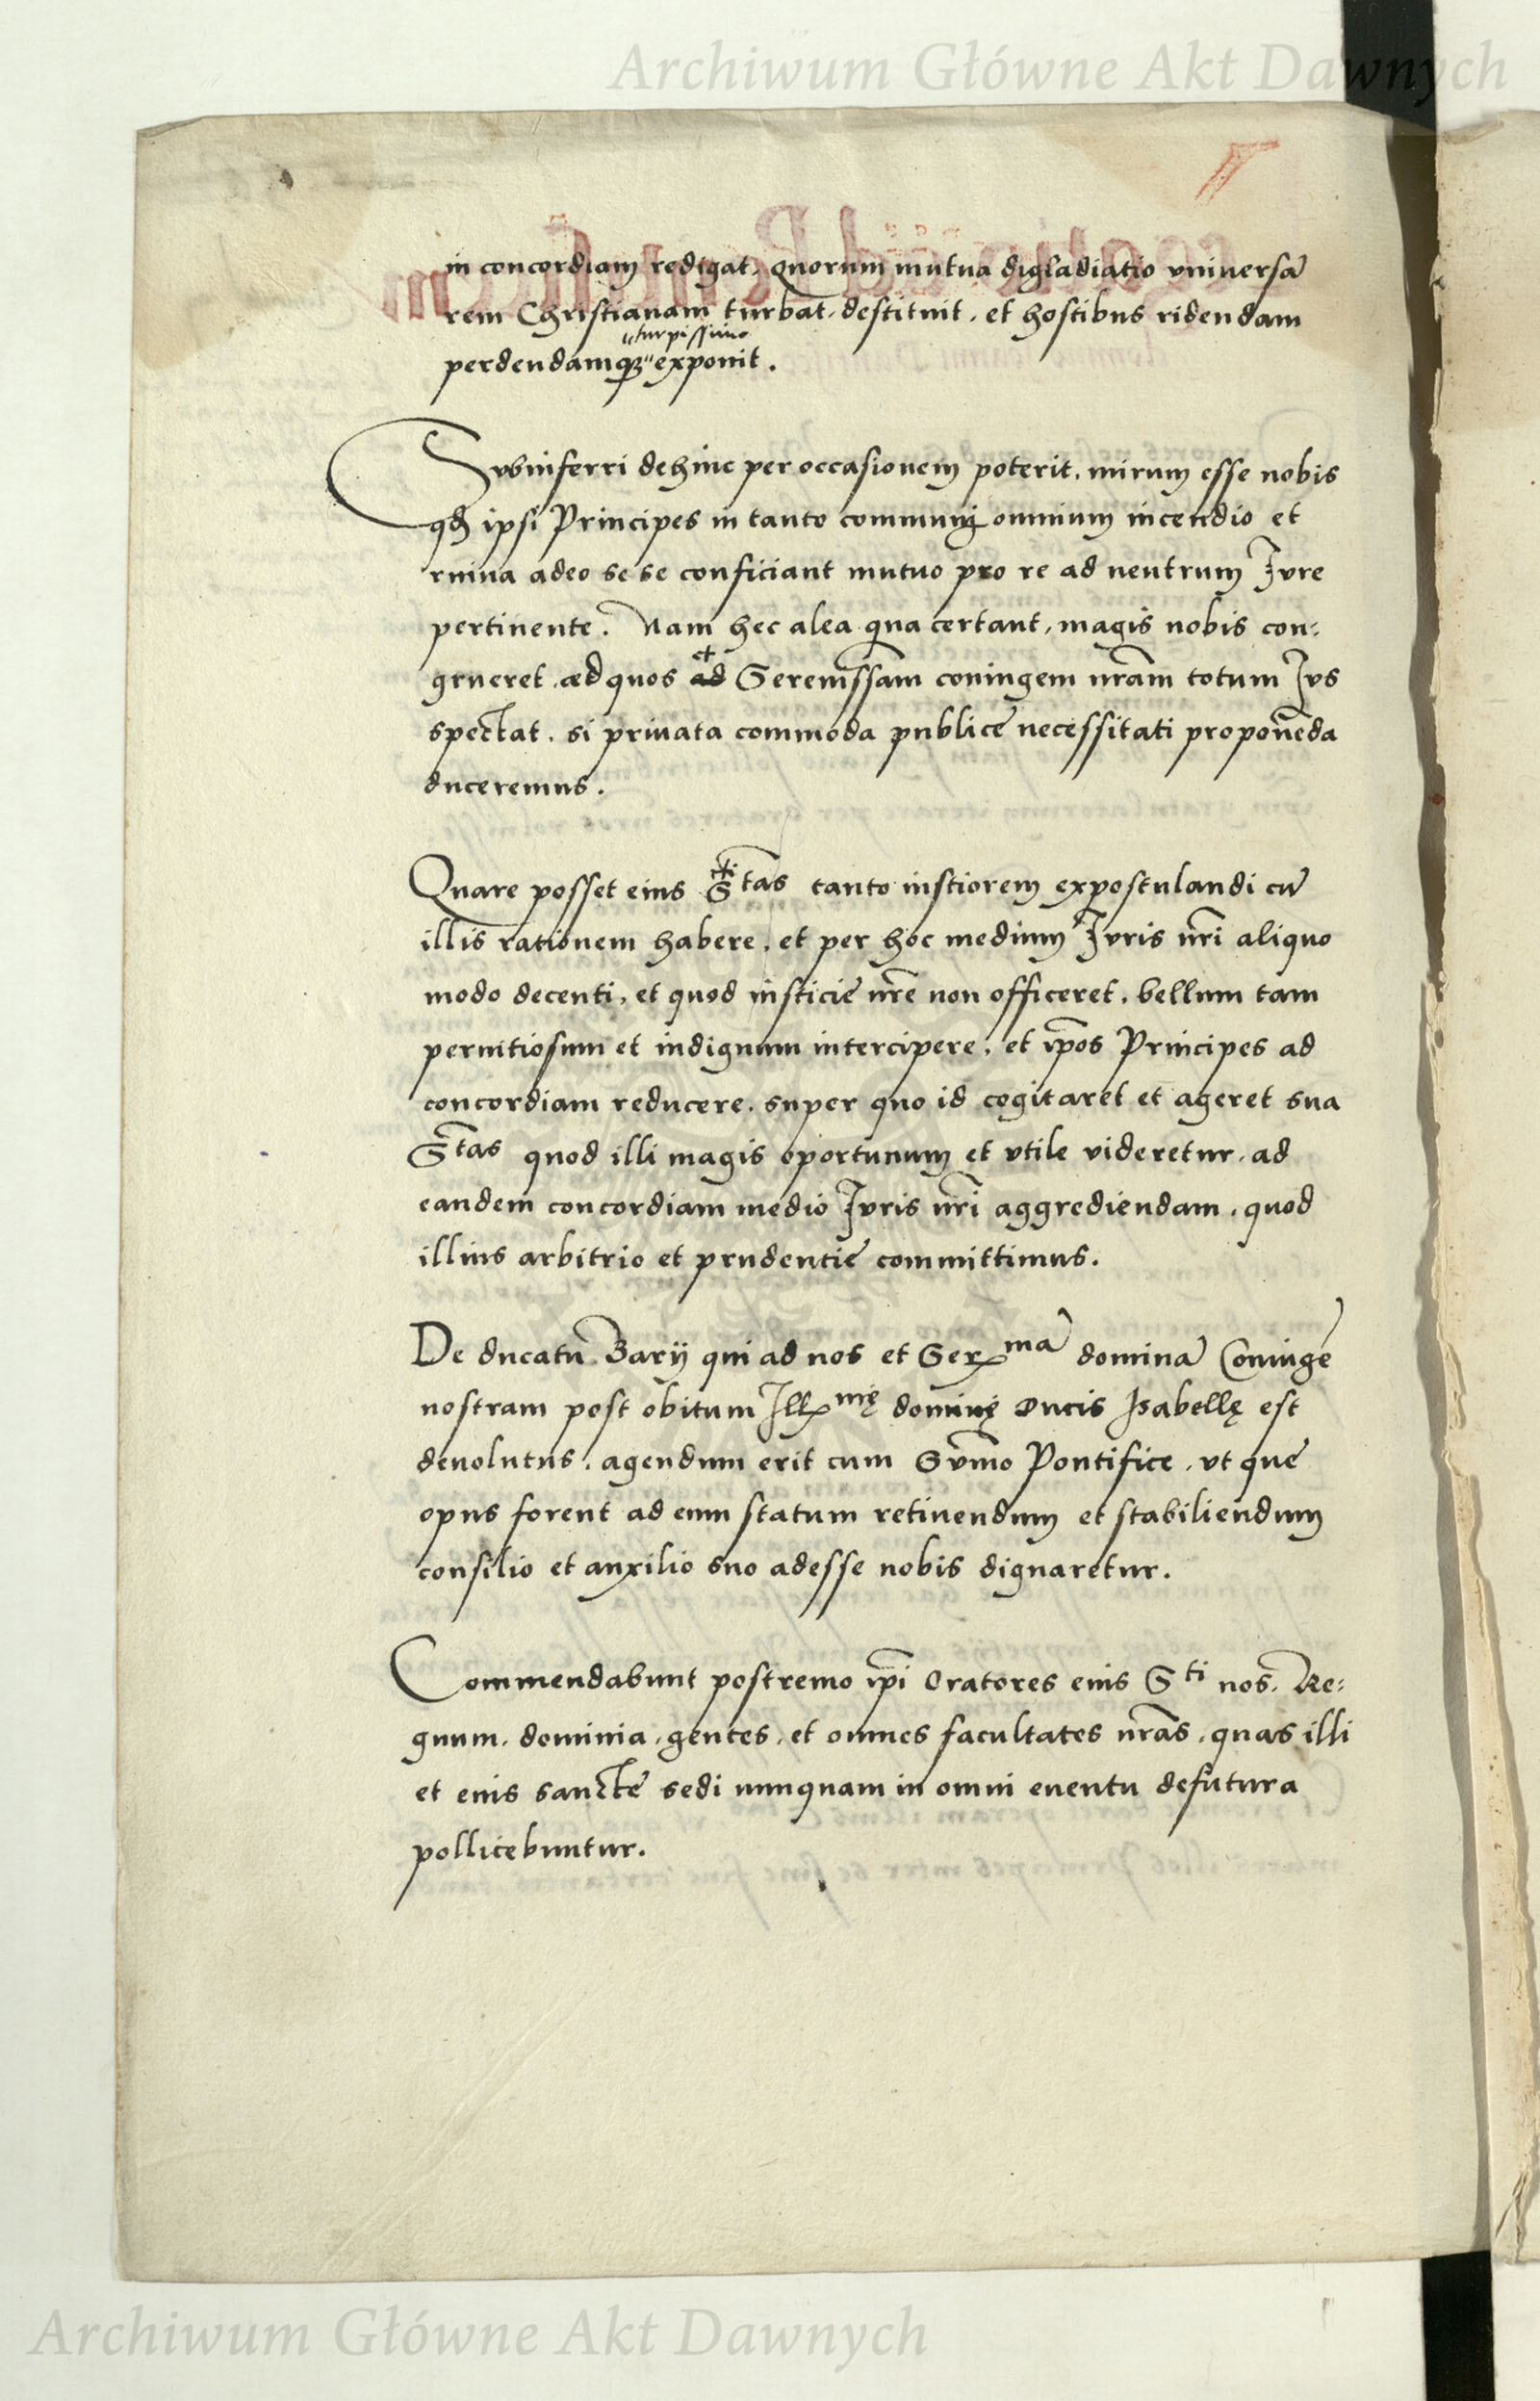 Archiwum Główne Akt Dawnych
in concordiam redigat, Quorum mutua digladiatio vniversā
rem Christianam turbat, destituit, et hostibus ridendam
"turpissime
perdendamqꝫ" exponit.
Svbinferri dehinc per occasionem poterit, mirum esse nobis
qđ ipsi Principes in tanto communi omnium incendio et
ruina adeo se se conficiant mutuo pro re ad neutrum Jvre
pertinente. Nam hec alea qua certant, magis nobis con:
et
grueret, ad quos ad Serenissam̄ coniugem nrām totum Jvs
spectat, si priuata commoda publicē necessitati proponēda
duceremus.
Quare posset eius S^tas tanto iustiorem expostulandi cū
illis rationem habere, et per hoc medium Jvris nr̄i aliquo
modo decenti, et quod iusticiē nr̄e non officeret, bellum tam
pernitiosum et indignum intercipere, et ip̄os Principes ad
concordiam reducere, super quo id cogitaret et ageret sua
S^tas quod illi magis oportunum et vtile videretur, ad
eandem concordiam medio Jvris nr̄i aggrediendam, quod
illius arbitrio et prudentiē committimus.
De ducatu Barij qui ad nos et Ser^mā dominā Coniugē
nostram post obitum Ill^mę dominę Ducis Isabellę est
deuolutus, agendum erit cum Sum̄o Pontifice, vt quē
opus forent ad eum statum retinendum et stabiliendum
consilio et auxilio suo adesse nobis dignaretur.
Commendabunt postremo ip̄i Oratores eius S^ti nos, Re:
gnum, dominia, gentes, et omnes facultates nrās, quas illi
et eius sanctē sedi nunquam in omni euentu defutura
pollicebuntur.
Archiwum Główne Akt Dawnych